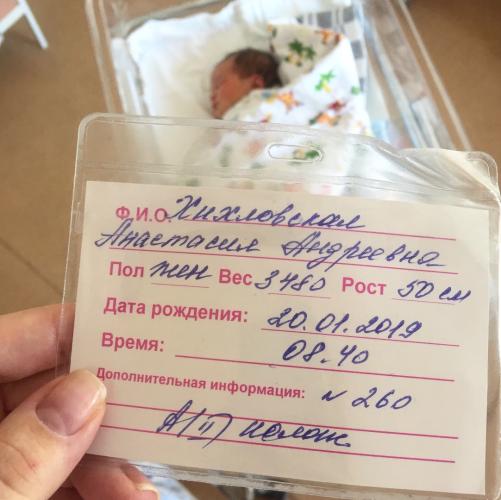 Ф.И.О. Хихловская
Анастасия Андреевна
Пол жен Вес 3480 Рост 50 см
Дата рождения: 20.01.2019
Время: 08.40
Дополнительная информация: N 260
A(II) полож